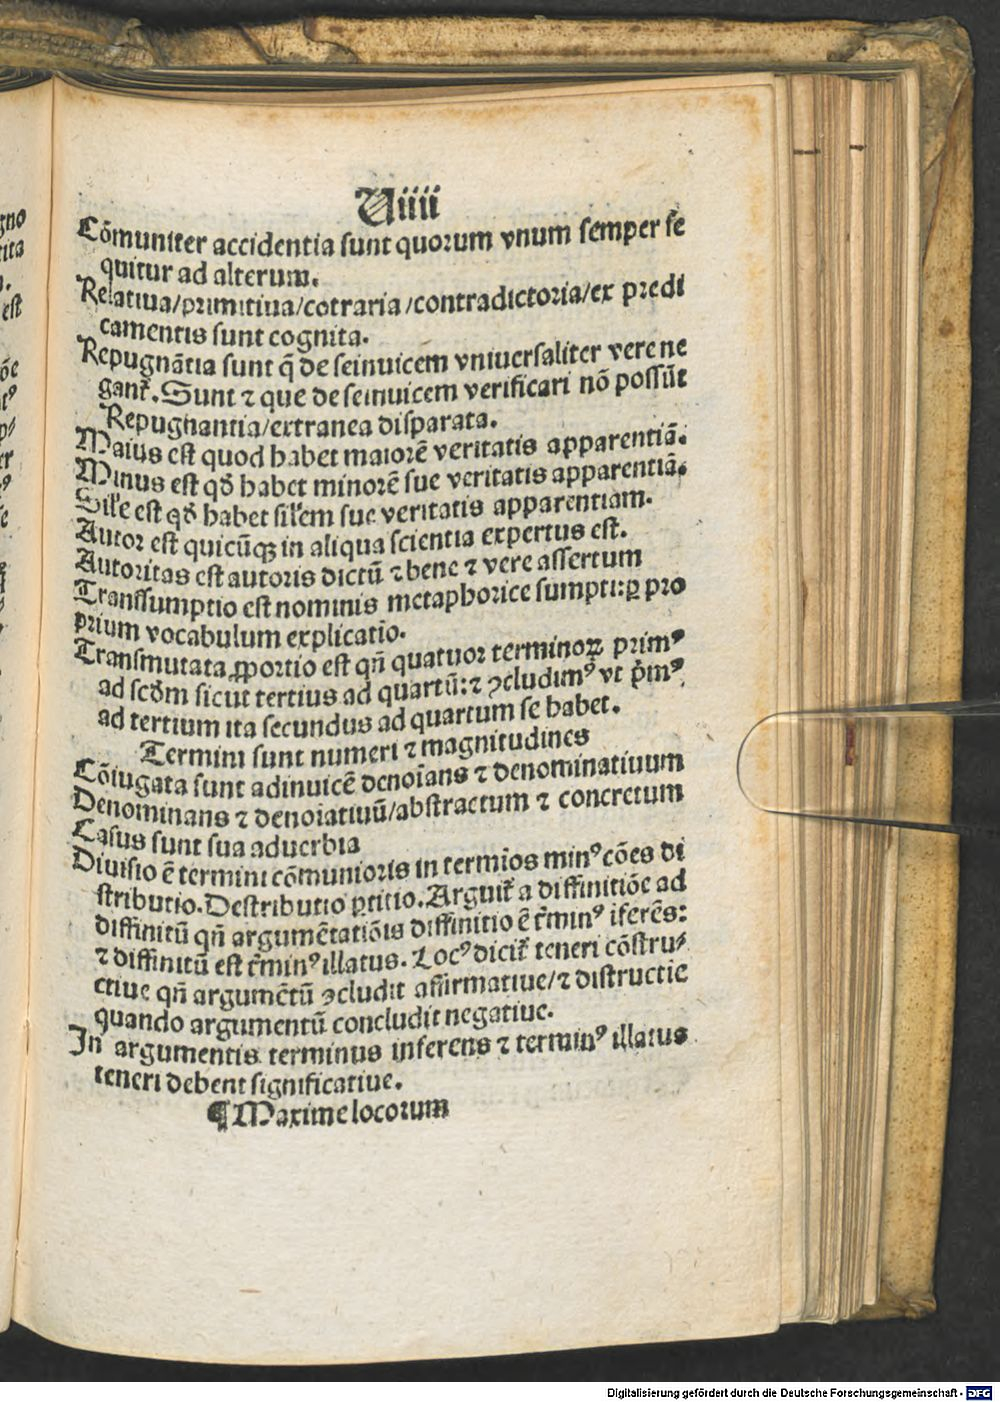 Uiiii
Cōmuniter accidentia sunt quorum vnum semper se
quitur ad alterum.
Relatiua/primitiua/cotraria/contradictoria/ex predi
camentis sunt cognita.
Repugnātia sunt q̄ de seinuicem vniuersaliter vere ne
gant᷑. Sunt ⁊ que de seinuicem verificari nō possūt
Repugnantia/extranea disparata.
Maius est quod habet maiorē veritatis apparentiā.
Minus est qđ habet minorē sue veritatis apparentiā.
Sil'e est qđ habet sil'em sue veritatis apparentiam.
Autor est quicūqꝫ in aliqua scientia expertus est.
Autoritas est autoris dictū ⁊ bene ⁊ vere assertum
Transsumptio est nominis metaphorice sumpti:ꝑ pro
prium vocabulum explicatio.
Transmutata ꝓportio est qn̄ quatuor terminoꝝ primꝰ
ad scđm sicut tertius ad quartū:⁊ ꝯcludimꝰ vt p̄mꝰ
ad tertium ita secundus ad quartum se habet.
Termini sunt numeri ⁊ magnitudines
Cōiugata sunt adinuicē denoīans ⁊ denominatiuum
Denominans ⁊ denoiatiuū/abstractum ⁊ concretum
Casus sunt sua aduerbia
Diuisio ē termini cōmunioris in termīos minꝰ cōes di
stributio. Destributio ꝑtitio. Arguit᷑ a diffinitiōe ad
diffinitū qn̄ argumētatiōis diffinitio ē t̄minꝰ iferēs:
⁊ diffinitū est t̄minꝰ illatus. Locꝰ dicit᷑ teneri cōstru⸗
ctiue qn̄ argumētū ꝯcludit affirmatiue/⁊ distructiē
quando argumentū concludit negatiue.
In argumentis terminus inferens ⁊ terminꝰ illatus
teneri debent significatiue.
¶ Maxime locorum
gno
tita
est
Digitalisierung gefördert durch die Deutsche Forschungsgemeinschaft - DFG